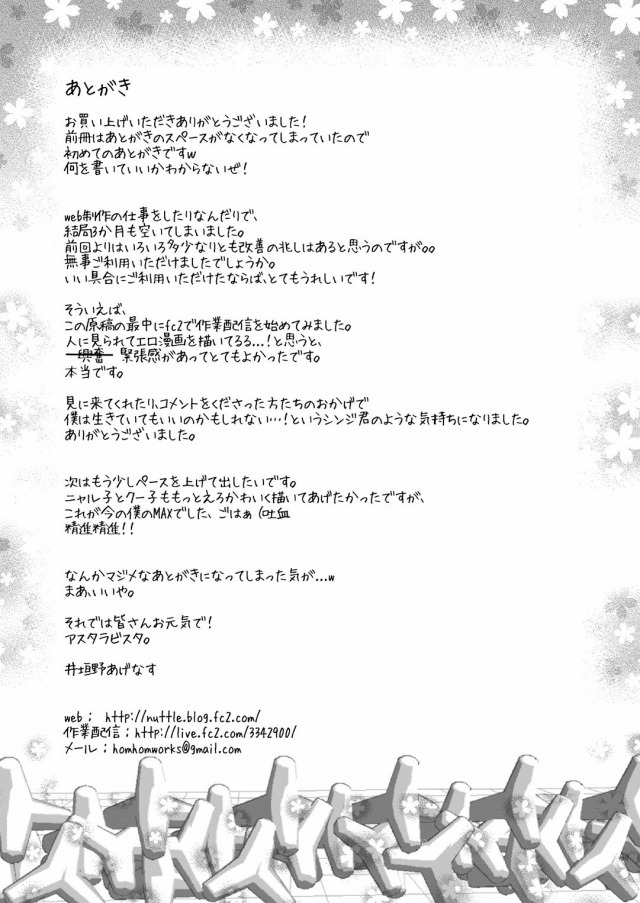 あとがき
お買い上げいただきありがとうございました!
前冊はあとがきのスペースがなくなってしまっていたので
初めてのあとがきですw
何を書いていいかわからないぜ!
web制作の仕事をしたりなんだりで、
結局3か月も空いてしまいました。
前回よりはいろいろ多少なりとも改善の兆しはあると思うのですが。。
無事ご利用いただけましたでしょうか。
いい具合にご利用いただけたならば、とてもうれしいです!
そういえば、
この原稿の最中にfc2で作業配信を始めてみました。
人に見られてエロ漫画を描いてるる...!と思うと、
興奮 緊張感があってとてもよかったです。
本当です。
見に来てくれたり、コメントをくださった方たちのおかげで
僕は生きていてもいいのかもしれない…!というシンジ君のような気持ちになりました。
ありがとうございました。
次はもう少しペースを上げて出したいです。
ニャル子とクー子ももっとえろかわいく描いてあげたかったですが、
これが今の僕のMAXでした、ごはぁ(吐血
精進精進!!
なんかマジメなあとがきになってしまった気が...w
まあ、いいや。
それでは皆さんお元気で!
アスタラビスタ。
井垣野あげなす
web ; http://nuttle.blog.fc2.com/
作業配信 ; http://live.fc2.com/3342900/
メール ; homhomworks@gmail.com